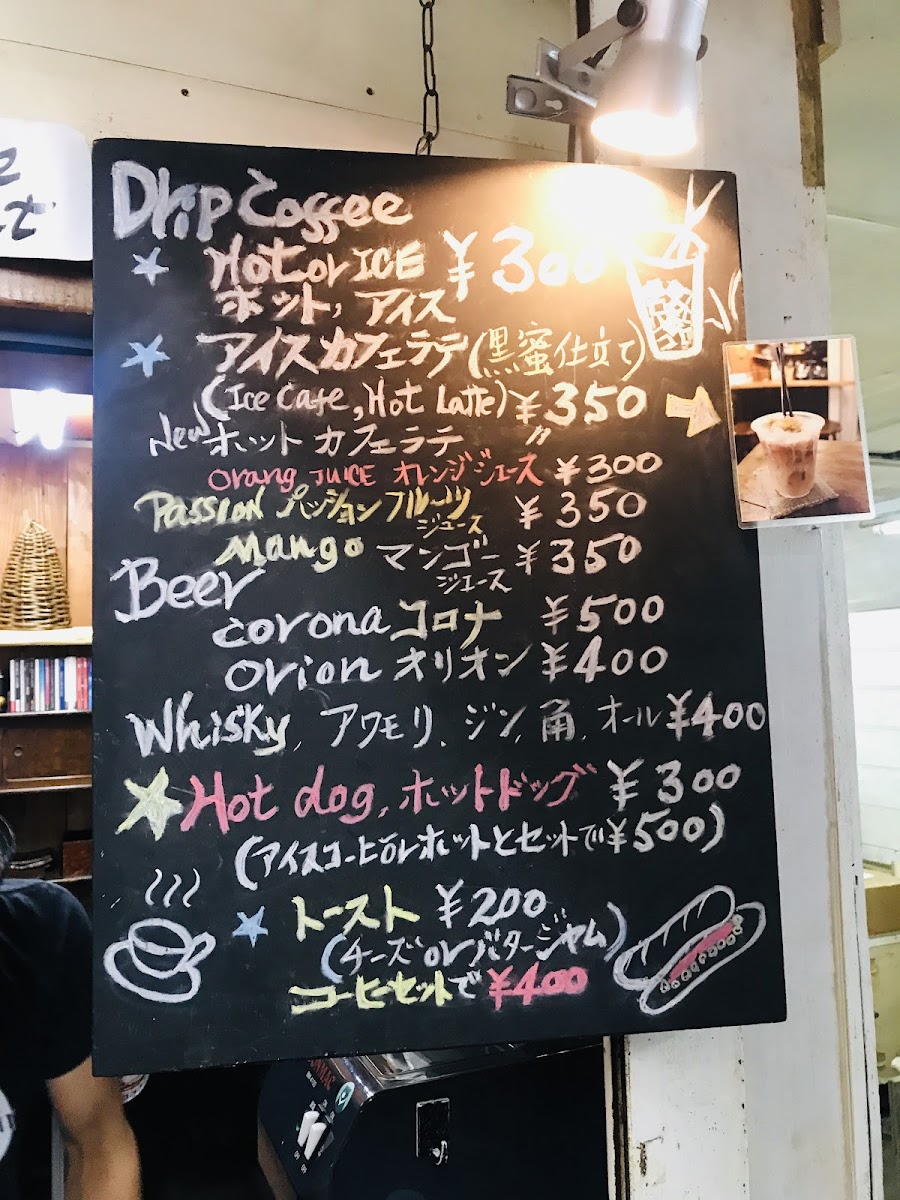 Drip Coffee
Hot or ICE ¥300
ホット, アイス
アイスカフェラテ(黒蜜仕立て)
(Ice Cafe, Hot Latte) ¥350
New ホットカフェラテ 〃
Orang JUICE オレンジジュース ¥300
Passion パッションフルーツ ¥350
ジュース
Mango マンゴー ¥350
ジュース
Beer
corona コロナ ¥500
orion オリオン ¥400
Whisky, アワモリ, ジン, 角, オール ¥400
Hot dog, ホットドッグ ¥300
(アイスコーヒorホットとセットで¥500)
トースト ¥200
(チーズorバタージャム)
コーヒーセットで ¥400